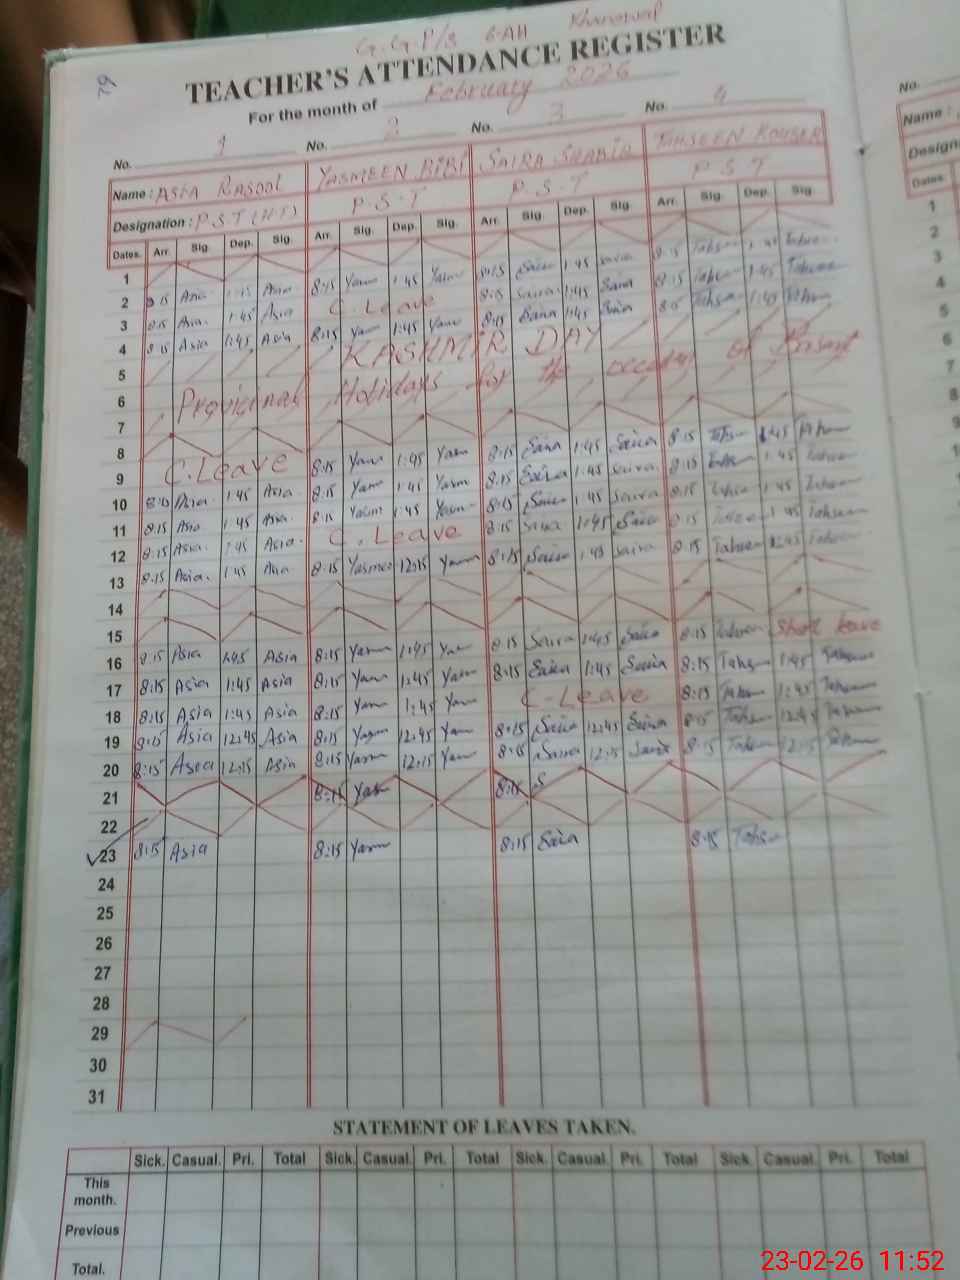 G.G.P/S 6-AH Khanewal
TEACHER'S ATTENDANCE REGISTER
For the month of February 2026
No. 1 No. 2 No. 3 No. 4
Name : ASIA RASOOL YASMEEN BIBI SAIRA SHABIR TAHSEEN KOUSER
Designation : P.S.T (H.T) P.S.T P.S.T P.S.T
Dates. Arr. Sig. Dep. Sig. Arr. Sig. Dep. Sig. Arr. Sig. Dep. Sig. Arr. Sig. Dep. Sig.
1
2 8:15 Asia 1:45 Asia 8:15 Yasm 1:45 Yasm 8:15 Saira 1:45 Saira 8:15 Tahse 1:45 Tahse
3 8:15 Asia 1:45 Asia C. Leave 8:15 Saira 1:45 Saira 8:15 Tahse 1:45 Tahse
4 8:15 Asia 1:45 Asia 8:15 Yasm 1:45 Yasm 8:15 Saira 1:45 Saira 8:15 Tahse 1:45 Tahse
5 KASHMIR DAY
6 Provicinal Holidays for the of Basant
7
8
9 C. Leave 8:15 Yasm 1:45 Yasm 8:15 Saira 1:45 Saira 8:15 Tahse 1:45 Tahse
10 Asia 1:45 Asia 8:15 Yasm 1:45 Yasm 8:15 Saira 1:45 Saira 8:15 Tahse 1:45 Tahse
11 8:15 Asia 1:45 Asia 8:15 Yasm 1:45 Yasm 8:15 Saira 1:45 Saira 8:15 Tahse 1:45 Tahse
12 8:15 Asia 1:45 Asia C. Leave 8:15 Saira 1:45 Saira 8:15 Tahse 1:45 Tahse
13 8:15 Asia 1:45 Asia 8:15 Yasmee 12:15 Yasm 8:15 Saira Saira 8:15 Tahse Tahse
14
15
16 8:15 Asia 1:45 Asia 8:15 Yasm 1:45 Yasm 8:15 Saira 1:45 Saira 8:15 Tahse Short leave
17 8:15 Asia 1:45 Asia 8:15 Yasm 1:45 Yasm 8:15 Saira 1:45 Saira 8:15 Tahse 1:45 Tahse
18 8:15 Asia 1:45 Asia 8:15 Yasm 1:45 Yasm C-Leave 8:15 Tahse 1:45 Tahse
19 8:15 Asia 12:45 Asia 8:15 Yasm 12:45 Yasm 8:15 Saira 12:45 Saira 8:15 Tahse 12:45 Tahse
20 8:15 Asia 12:15 Asia 8:15 Yasm 12:15 Yasm 8:15 Saira 12:15 Saira 8:15 Tahse 12:15 Tahse
21 8:15 Yasm 8:15 S
22
23 8:15 Asia 8:15 Yasm 8:15 Saira 8:15 Tahse
24
25
26
27
28
29
30
31
STATEMENT OF LEAVES TAKEN.
Sick. Casual. Pri. Total Sick. Casual. Pri. Total Sick. Casual. Pri. Total Sick. Casual. Pri. Total
This
month.
Previous
Total.
No.
Name :
Dates.
1
2
3
4
5
6
7
8
9
23-02-26 11:52